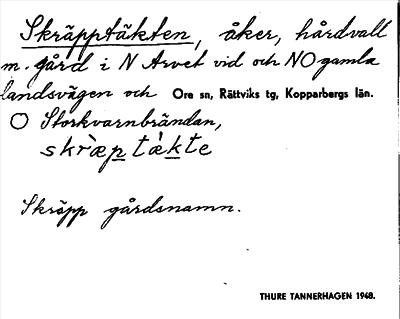 Skräpptäkten, åker, hårdvall
m. gård i N Arvet vid och NO gamla
landsvägen och Ore sn, Rättviks tg, Kopparbergs län.
O Storkvarnbrändan,
skræp tàkte
Skräpp gårdsnamn.
THURE TANNERHAGEN 1948.